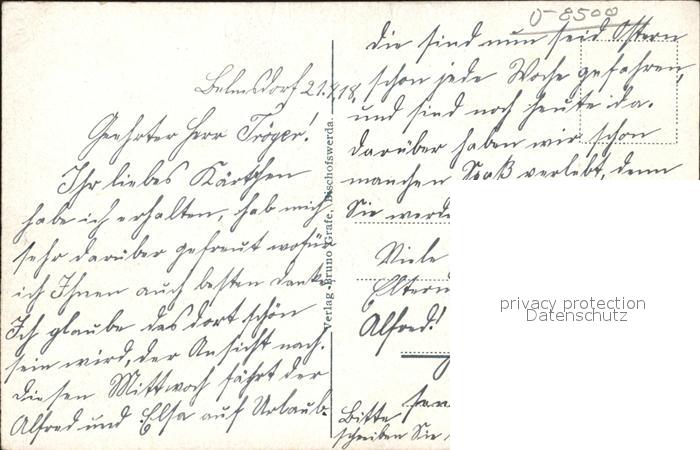 Belmsdorf 21.4.18.
Geehrter Herr Tröger!
Ihr liebes Kärtchen
habe ich erhalten, hab mich
sehr darüber gefreut wofür
ich Ihnen auch besten Danke.
Ich glaube das dort schön
sein wird, der Ansicht nach.
diesen Mittwoch fährt der
Alfred und Elsa auf Urlaub.
Verlag Bruno Grafe, Bischofswerda.
0-8500
die sind nun seid Ostern
schon jede Woche gefahren,
und sind noch heute da.
darüber haben wir schon
manchen Spaß verlebt, denn
Sie
Viele
Eltern
Alfred!
Bitte
schreiben Sie
privacy protection
Datenschutz